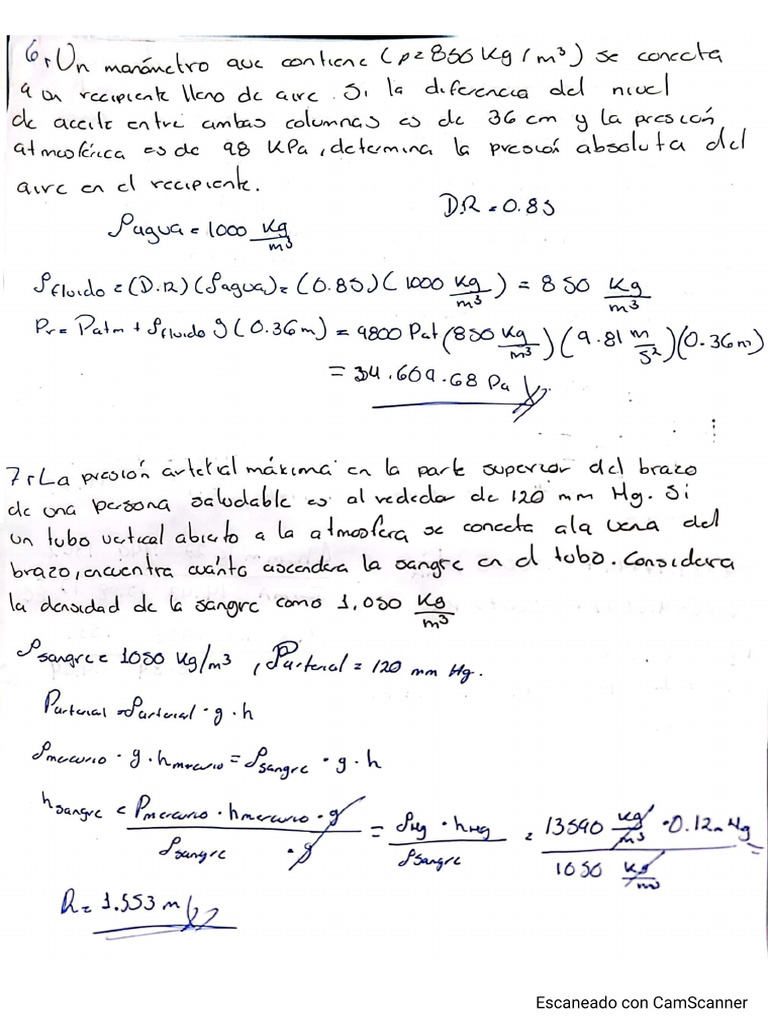 6. Un manómetro que contiene (ρ=850 Kg/m³) se conecta
a un recipiente lleno de aire. Si la diferencia del nivel
de aceite entre ambas columnas es de 36 cm y la presión
atmosférica es de 98 KPa, determina la presión absoluta del
aire en el recipiente.
D.R = 0.85
ρagua = 1000 Kg/m³
ρfluido = (D.R)(ρagua) = (0.85)(1000 Kg/m³) = 850 Kg/m³
Pr = Patm + ρfluido g (0.36m) = 9800 Pa+(850 Kg/m³)(9.81 m/s²)(0.36m)
= 34.609.68 Pa
7. La presión arterial máxima en la parte superior del brazo
de una persona saludable es al rededor de 120 mm Hg. Si
un tubo vertical abierto a la atmosfera se conecta a la vena del
brazo, encuentra cuánto ascendera la sangre en el tubo. Considera
la densidad de la sangre como 1,050 Kg/m³
ρsangre = 1050 Kg/m³, Parterial = 120 mm Hg.
Parterial = ρarterial · g · h
ρmercurio · g · hmercurio = ρsangre · g · h
hsangre = ρmercurio · hmercurio · g / ρsangre · g = ρHg · hHg / ρsangre = 13590 kg/m³ · 0.12m Hg / 1050 kg/m³
R = 1.553 m
Escaneado con CamScanner